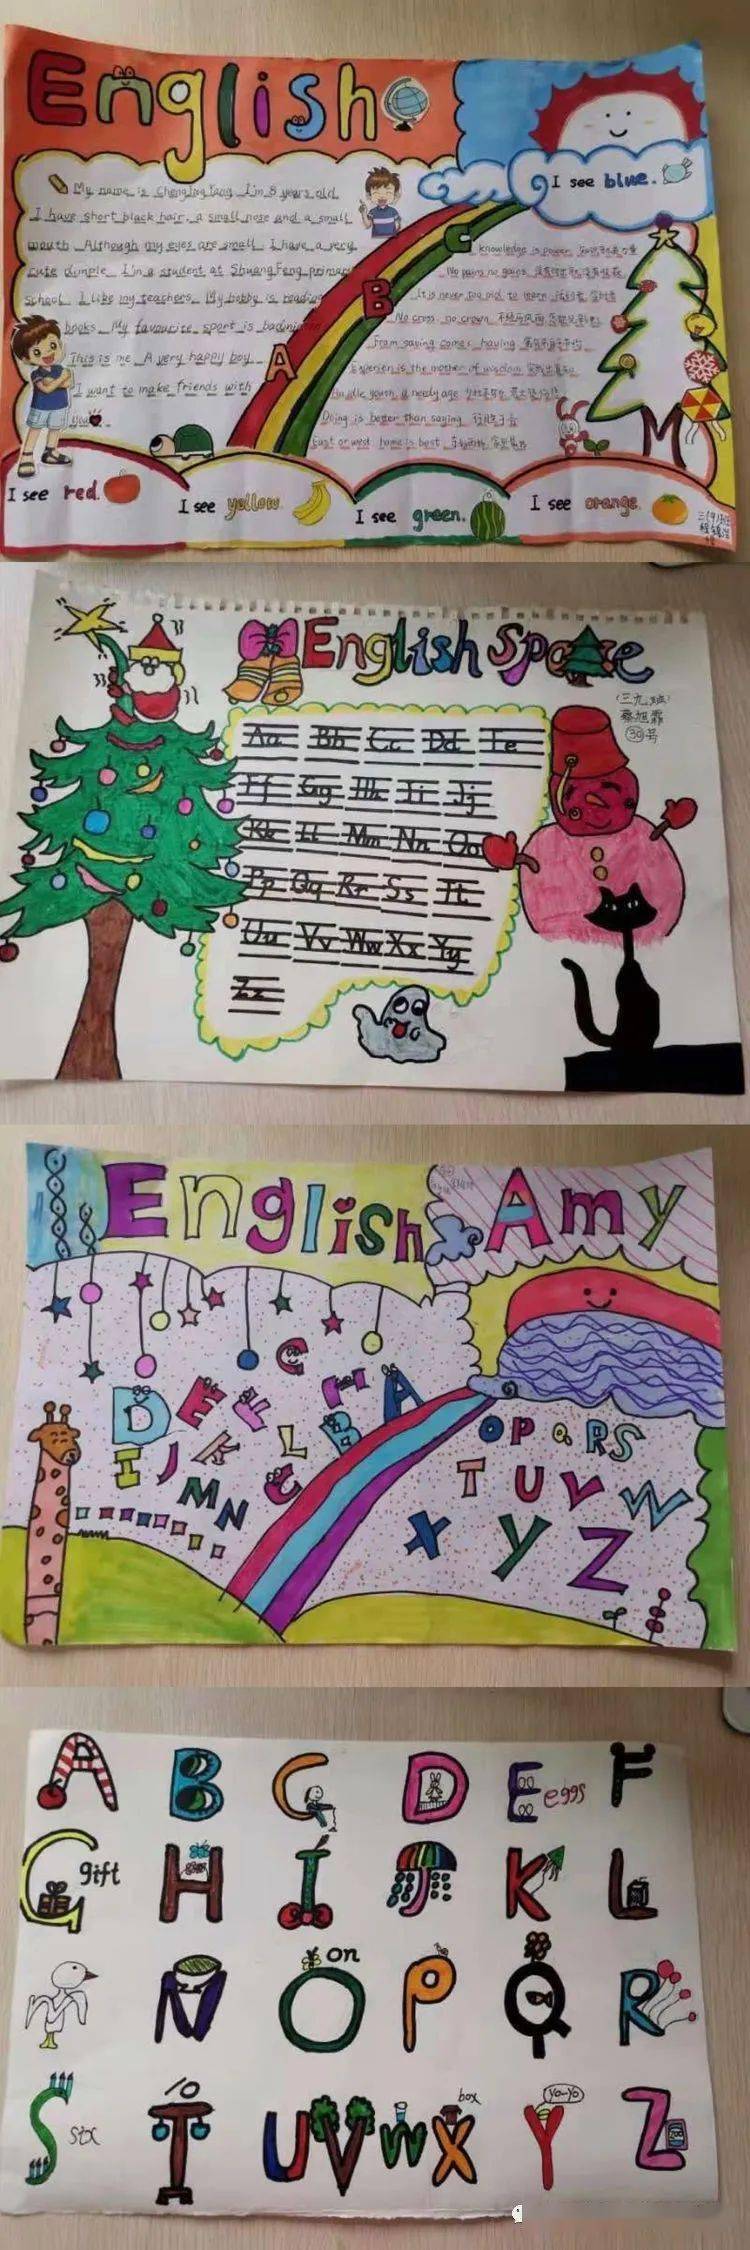 English
My name is Chengjingfang I'm 8 years old
I have short black hair, a small nose and a small
mouth Although my eyes are small I have a very
cute dimple I'm a student at ShuangFeng primary
school I like my teachers My hobby is reading
books My favourite sport is badminton
This is me A very happy boy
I want to make friends with
you
I see blue.
A
B
C
knowledge is power
No pains no gains
It is never too old to learn
No cross no crown
From saving comes having
is the mother of wisdom
idle youth, a needy age
Doing is better than saying
East or west home is best
M
I see red.
I see yellow.
I see green.
I see orange.
English Space
(三九班)
蔡旭霏
30号
Aa Bb Cc Dd Ee
Ff Gg Hh Ii Jj
Kk Ll Mm Nn Oo
Pp Qq Rr Ss Tt
Uu Vv Ww Xx Yy
Zz
English Amy
G
D E F H A
I J K L B
M N C
O P Q R S
T U V W
X Y Z
A B C D E eggs F
G gift H I J K L
N O on P Q R
S six T 10 U V W X box Y yo-yo Z zoo